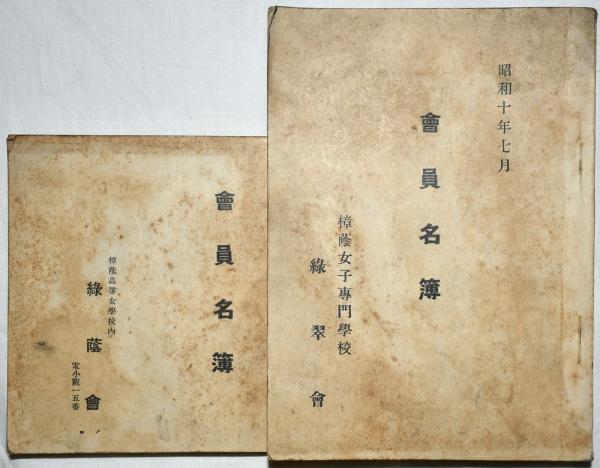 昭和十年七月
會員名簿
樟蔭女子專門學校
綠翠會
會員名簿
樟蔭高等女學校內
綠蔭會
電小阪一五番